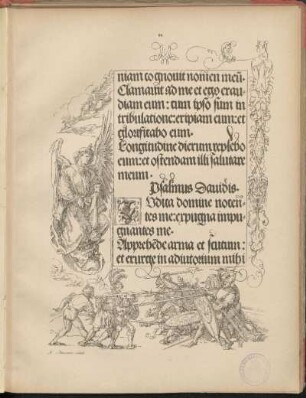 niam cognovit nomen meū.
Clamavit ad me et ego exau-
diam eum: cum ipso sum in
tribulatione: eripiam eum: et
glorificabo eum.
Longitudine dierum replebo
eum: et ostendam illi salutare
meum.
Psalmus Davidis.
Iudica domine nocen-
tes me: expugna impu-
gnantes me.
Apprehēde arma et scutum:
et exurge in adiutorium mihi